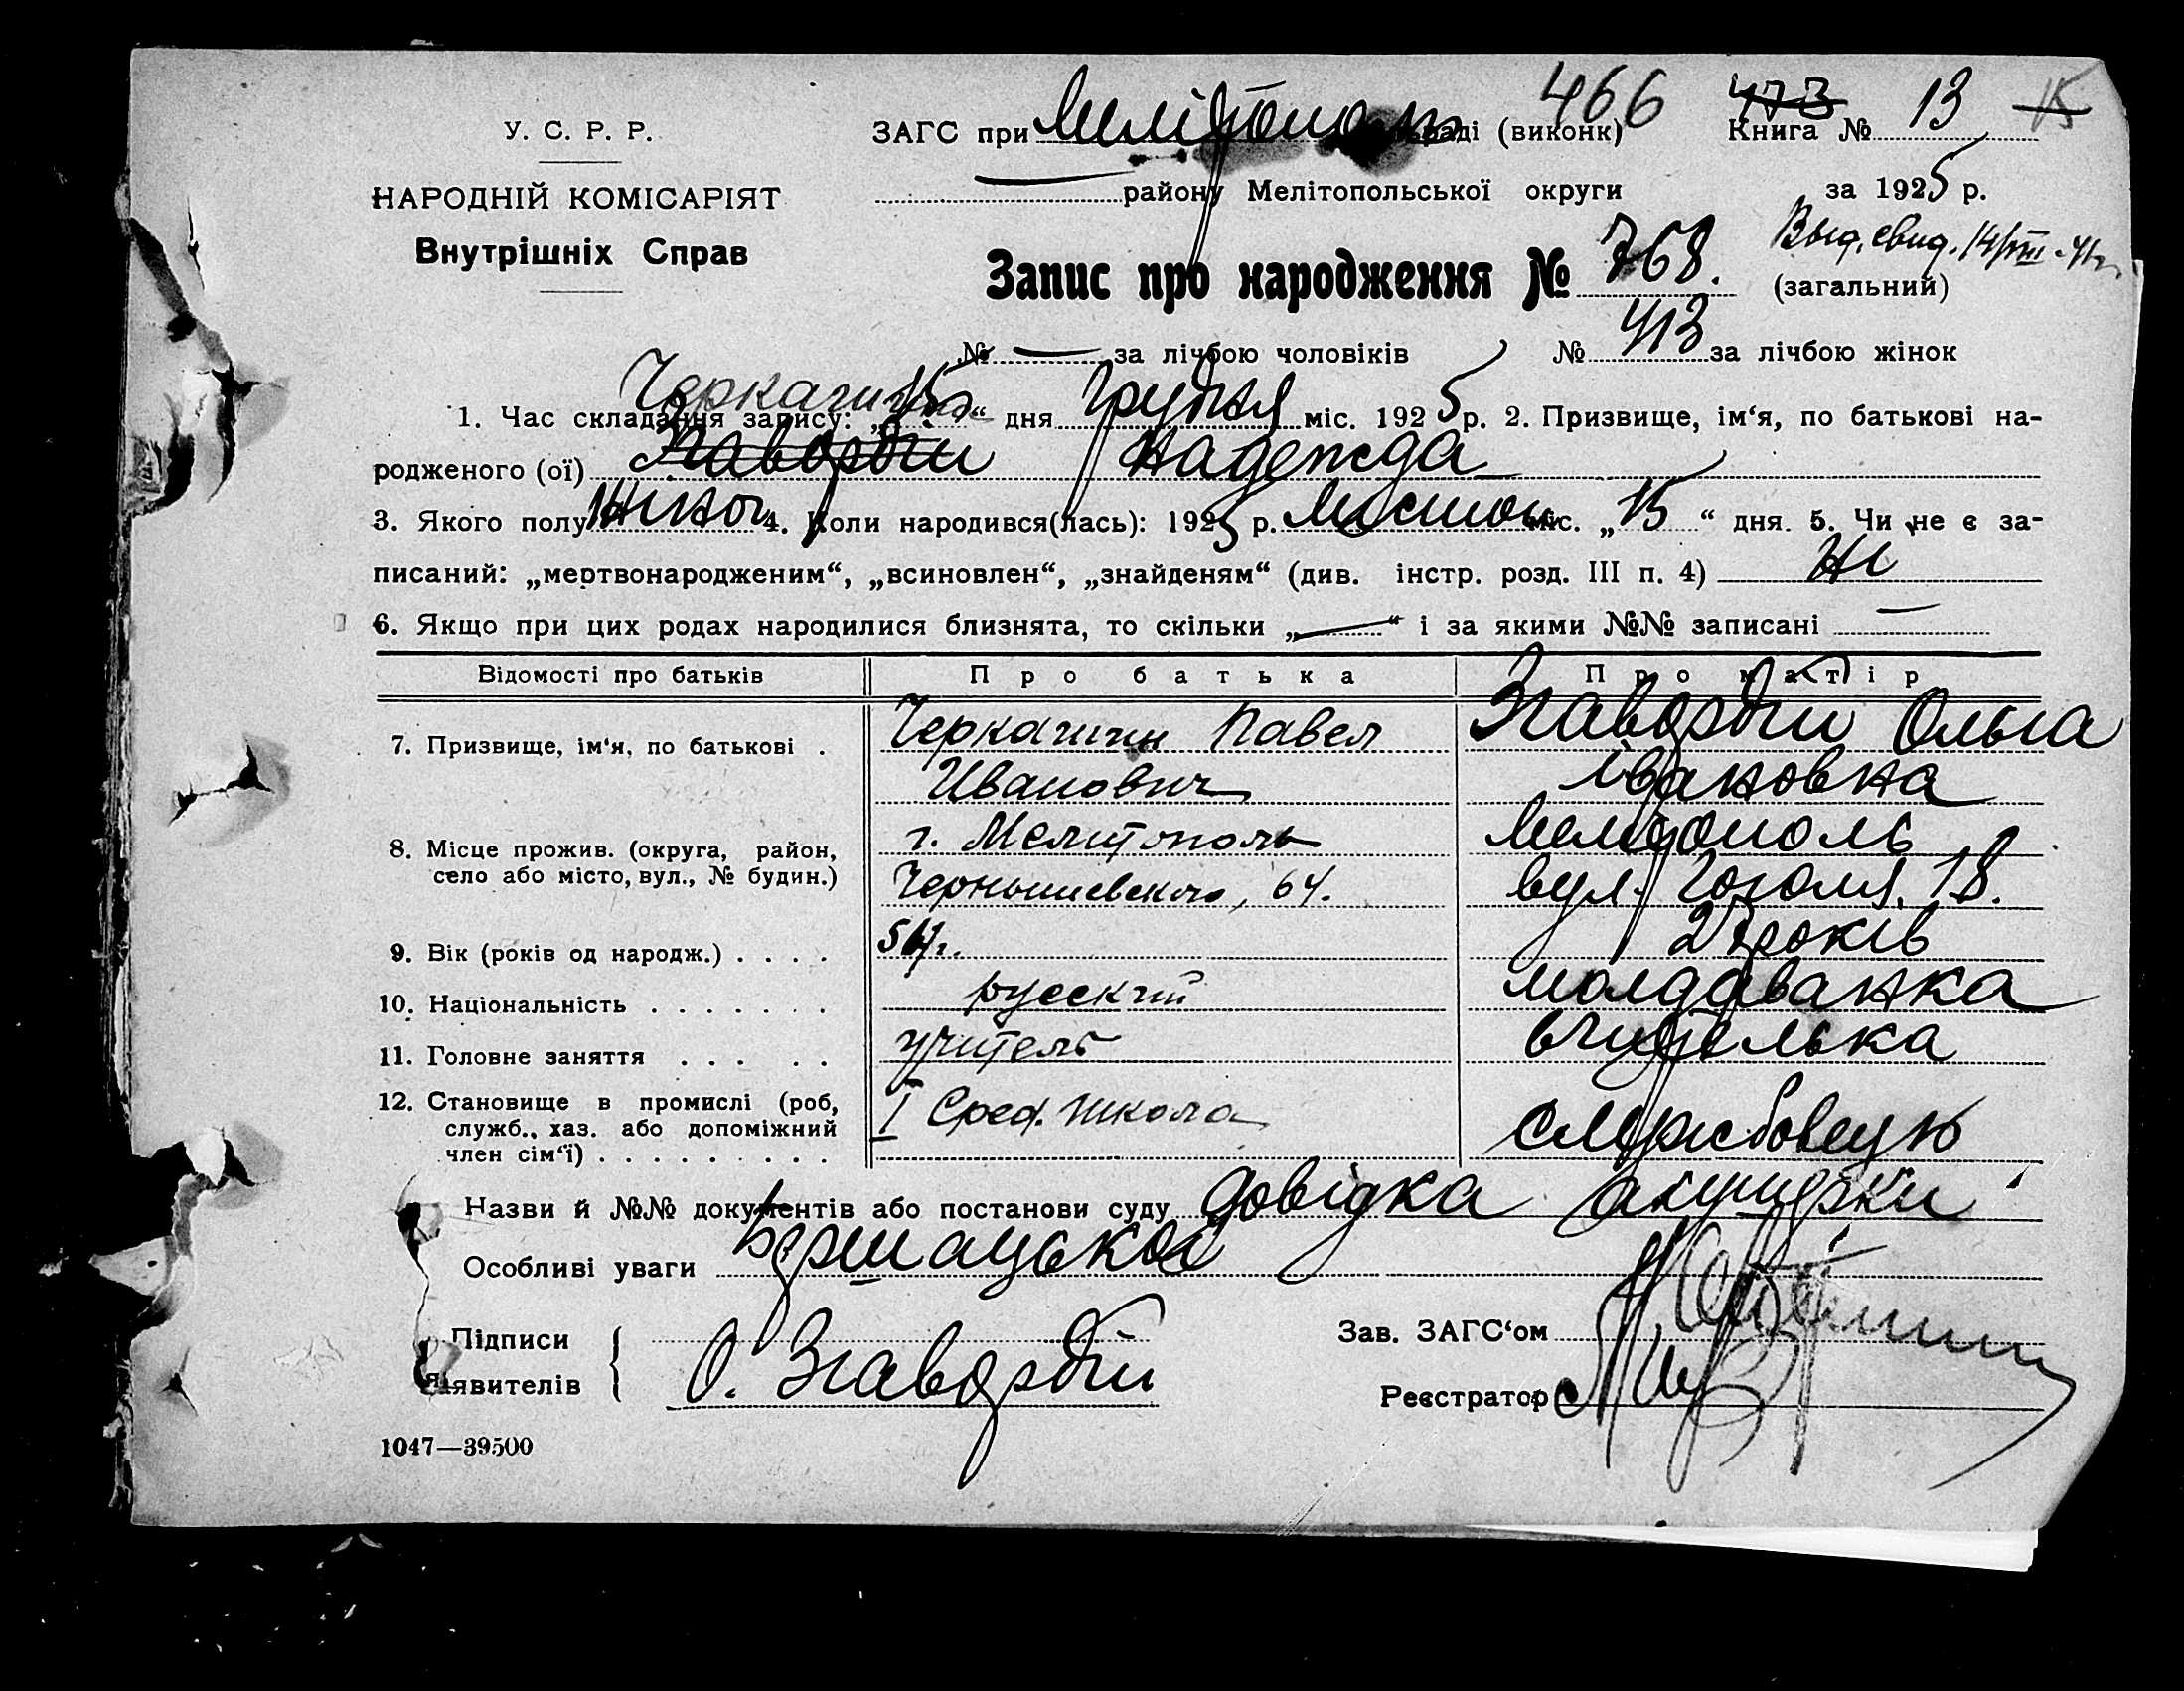 466 473 13 15
У. С. Р. Р. ЗАГС при раді (виконк) Книга №
НАРОДНІЙ КОМІСАРІЯТ району Мелітопольської округи за 1925 р.
Внутрішніх Справ
Выд. свид. 14/VIII-41г.
Запис про народження № 768. (загальний)
№ — за лічбою чоловіків № 413 за лічбою жінок
Черкагин
1. Час складання запису: „15“ дня Грудня міс. 1925 р. 2. Призвище, ім‘я, по батькові на-
родженого (ої) Надежда
3. Якого полу жіноч. 4. Коли народився(лась): 1925 р. міс. „15“ дня. 5. Чи не є за-
писаний: „мертвонародженим“, „всиновлен“, „знайденям“ (див. інстр. розд. III п. 4) Ні
6. Якщо при цих родах народилися близнята, то скільки „—“ і за якими №№ записані —
Відомості про батьків Про батька Про матір
7. Призвище, ім‘я, по батькові . Черкагин Павел Ольга
Иванович Івановна
8. Місце прожив. (округа, район, г. Мелитополь Мелітополь
село або місто, вул., № будин.) Чернышевского, 64. вул. Гоголя, 18.
9. Вік (років од народж.) . . . . років
10. Національність . . . . . . . русский молдаванка
11. Головне заняття . . . . . учитель вчителька
12. Становище в промислі (роб, I Сред. школа
служб., хаз. або допоміжний
член сім‘ї) . . . . . . . . .
Назви й №№ документів або постанови суду довідка акушерки
Особливі уваги
Підписи Зав. ЗАГС‘ом
заявителів { О. Реєстратор
1047—39500